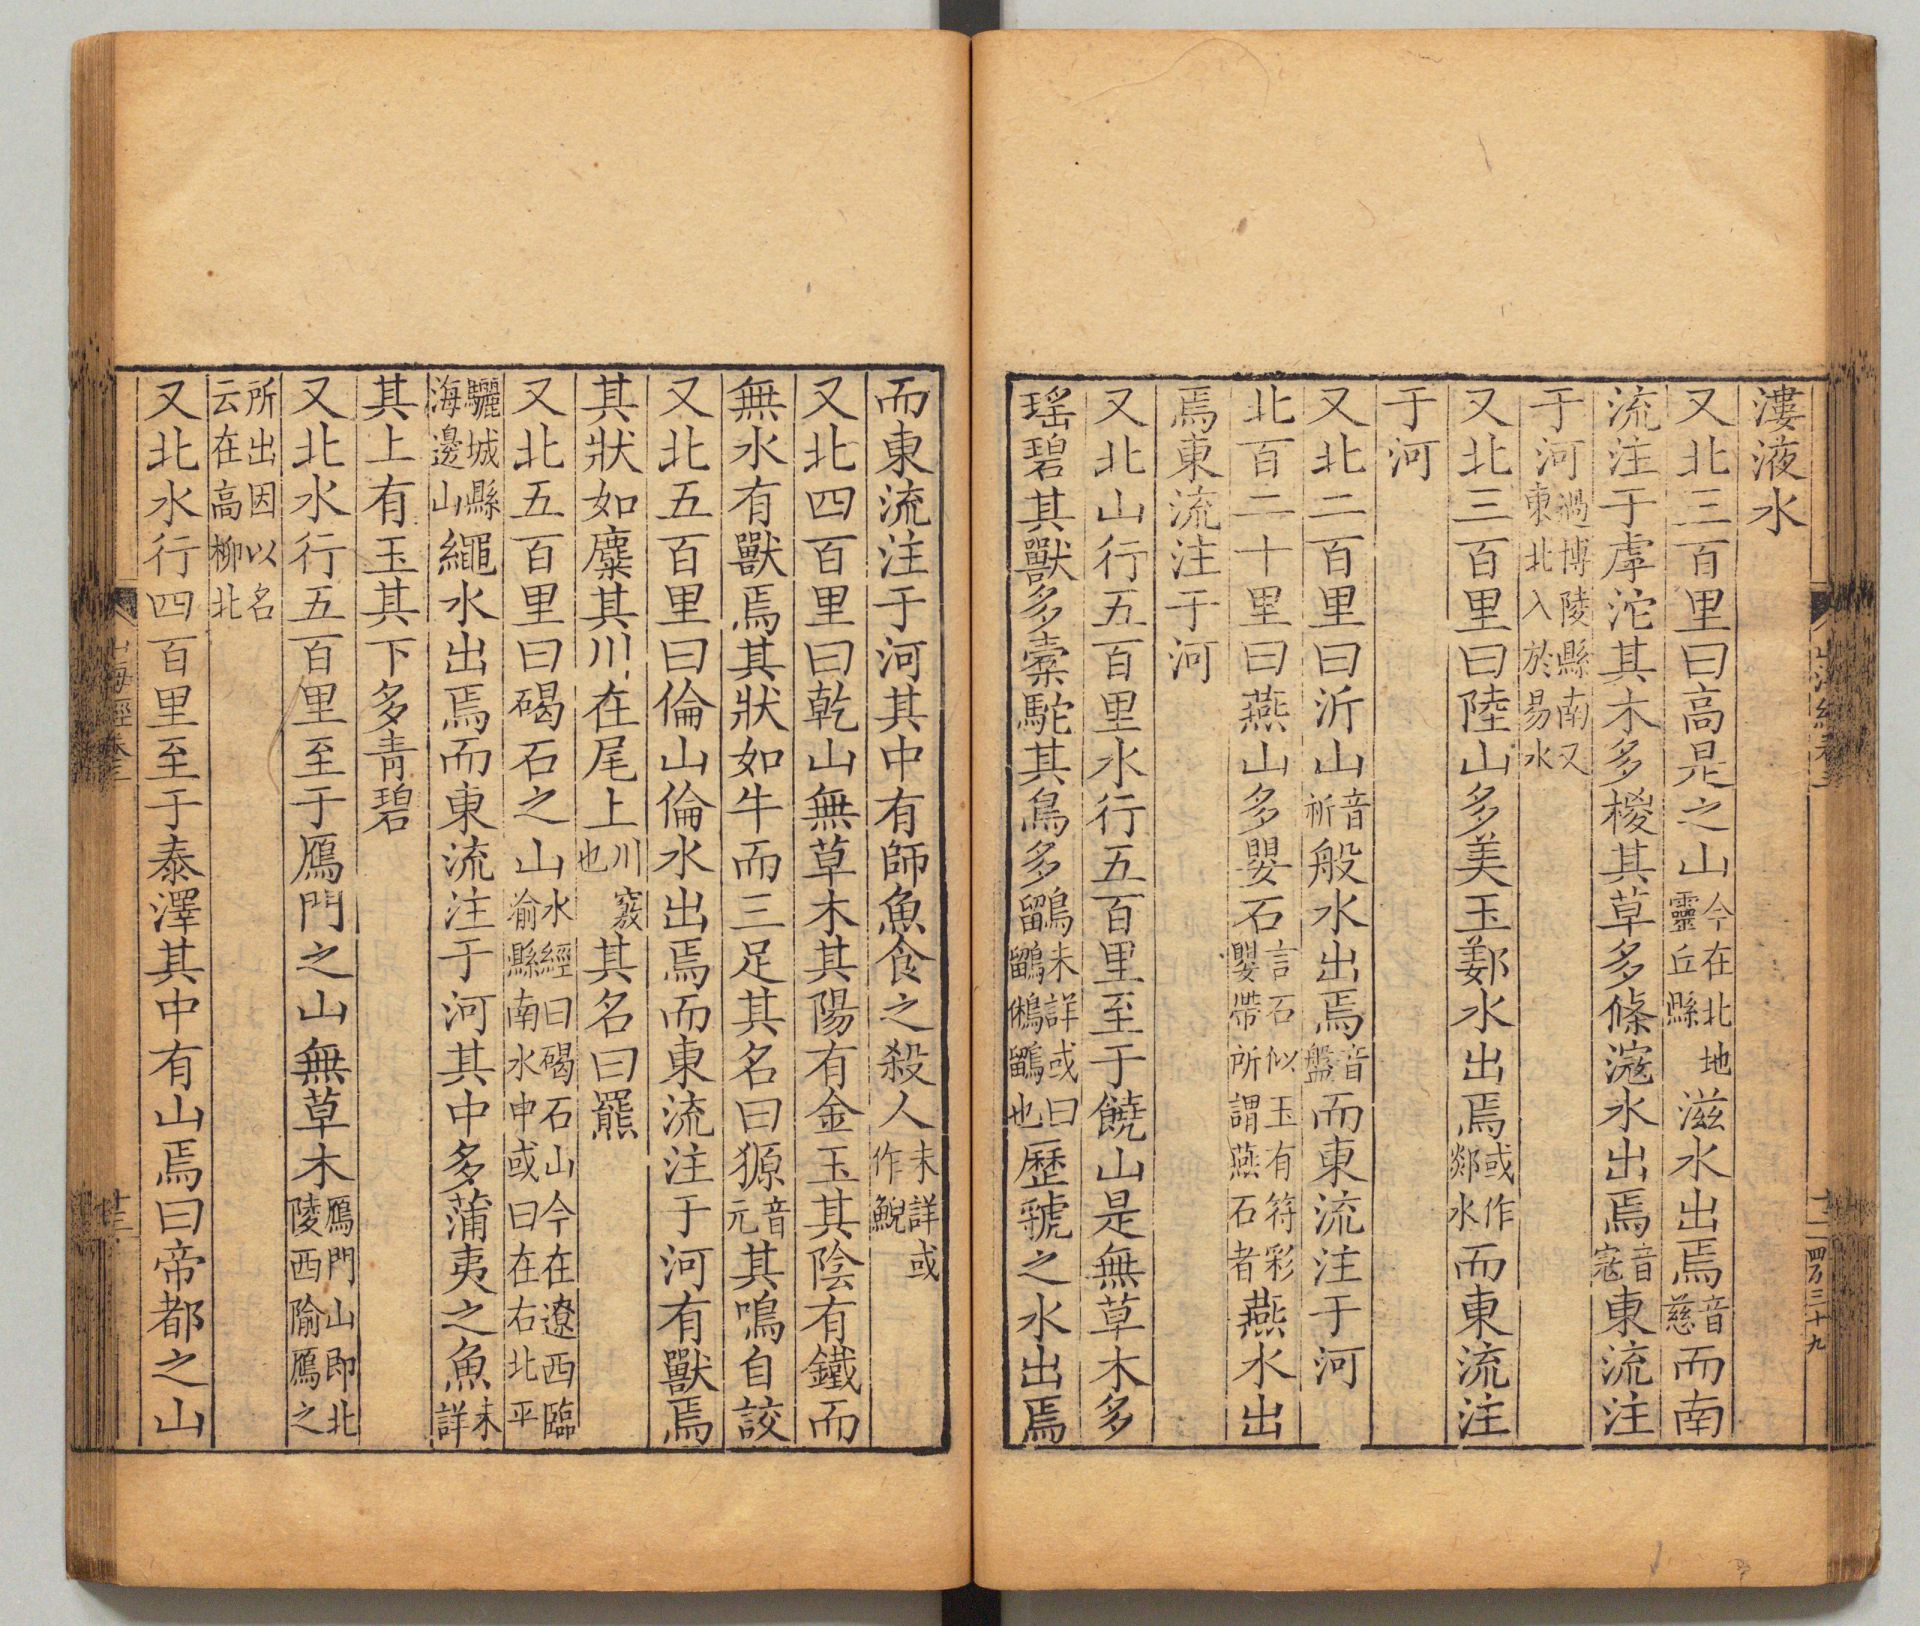 漊液水
又北三百里曰高是之山今在北地靈丘縣滋水出焉音慈而南
流注于虖沱其木多椶其草多條滱水出焉音寇東流注
于河過博陵縣南又東北入於易水
又北三百里曰陸山多美玉鄴水出焉或作郯水而東流注
于河
又北二百里曰沂山音祈般水出焉音盤而東流注于河
北百二十里曰燕山多嬰石言石似玉有符彩嬰帶所謂燕石者燕水出
焉東流注于河
又北山行五百里水行五百里至于饒山是無草木多
瑤碧其獸多橐駝其鳥多鶹未詳或曰鶹鵂鶹也歷虢之水出焉
而東流注于河其中有師魚食之殺人未詳或作鯢
又北四百里曰乾山無草木其陽有金玉其陰有鐵而
無水有獸焉其狀如牛而三足其名曰獂音元其鳴自詨
又北五百里曰倫山倫水出焉而東流注于河有獸焉
其狀如麋其川在尾上川竅也其名曰羆
又北五百里曰碣石之山水經曰碣石山今在遼西臨渝縣南水中或曰在右北平
驪城縣海邊山繩水出焉而東流注于河其中多蒲夷之魚未詳
其上有玉其下多青碧
又北水行五百里至于鴈門之山無草木鴈門山即北陵西隃鴈之
所出因以名云在高柳北
又北水行四百里至于泰澤其中有山焉曰帝都之山
山海經卷三